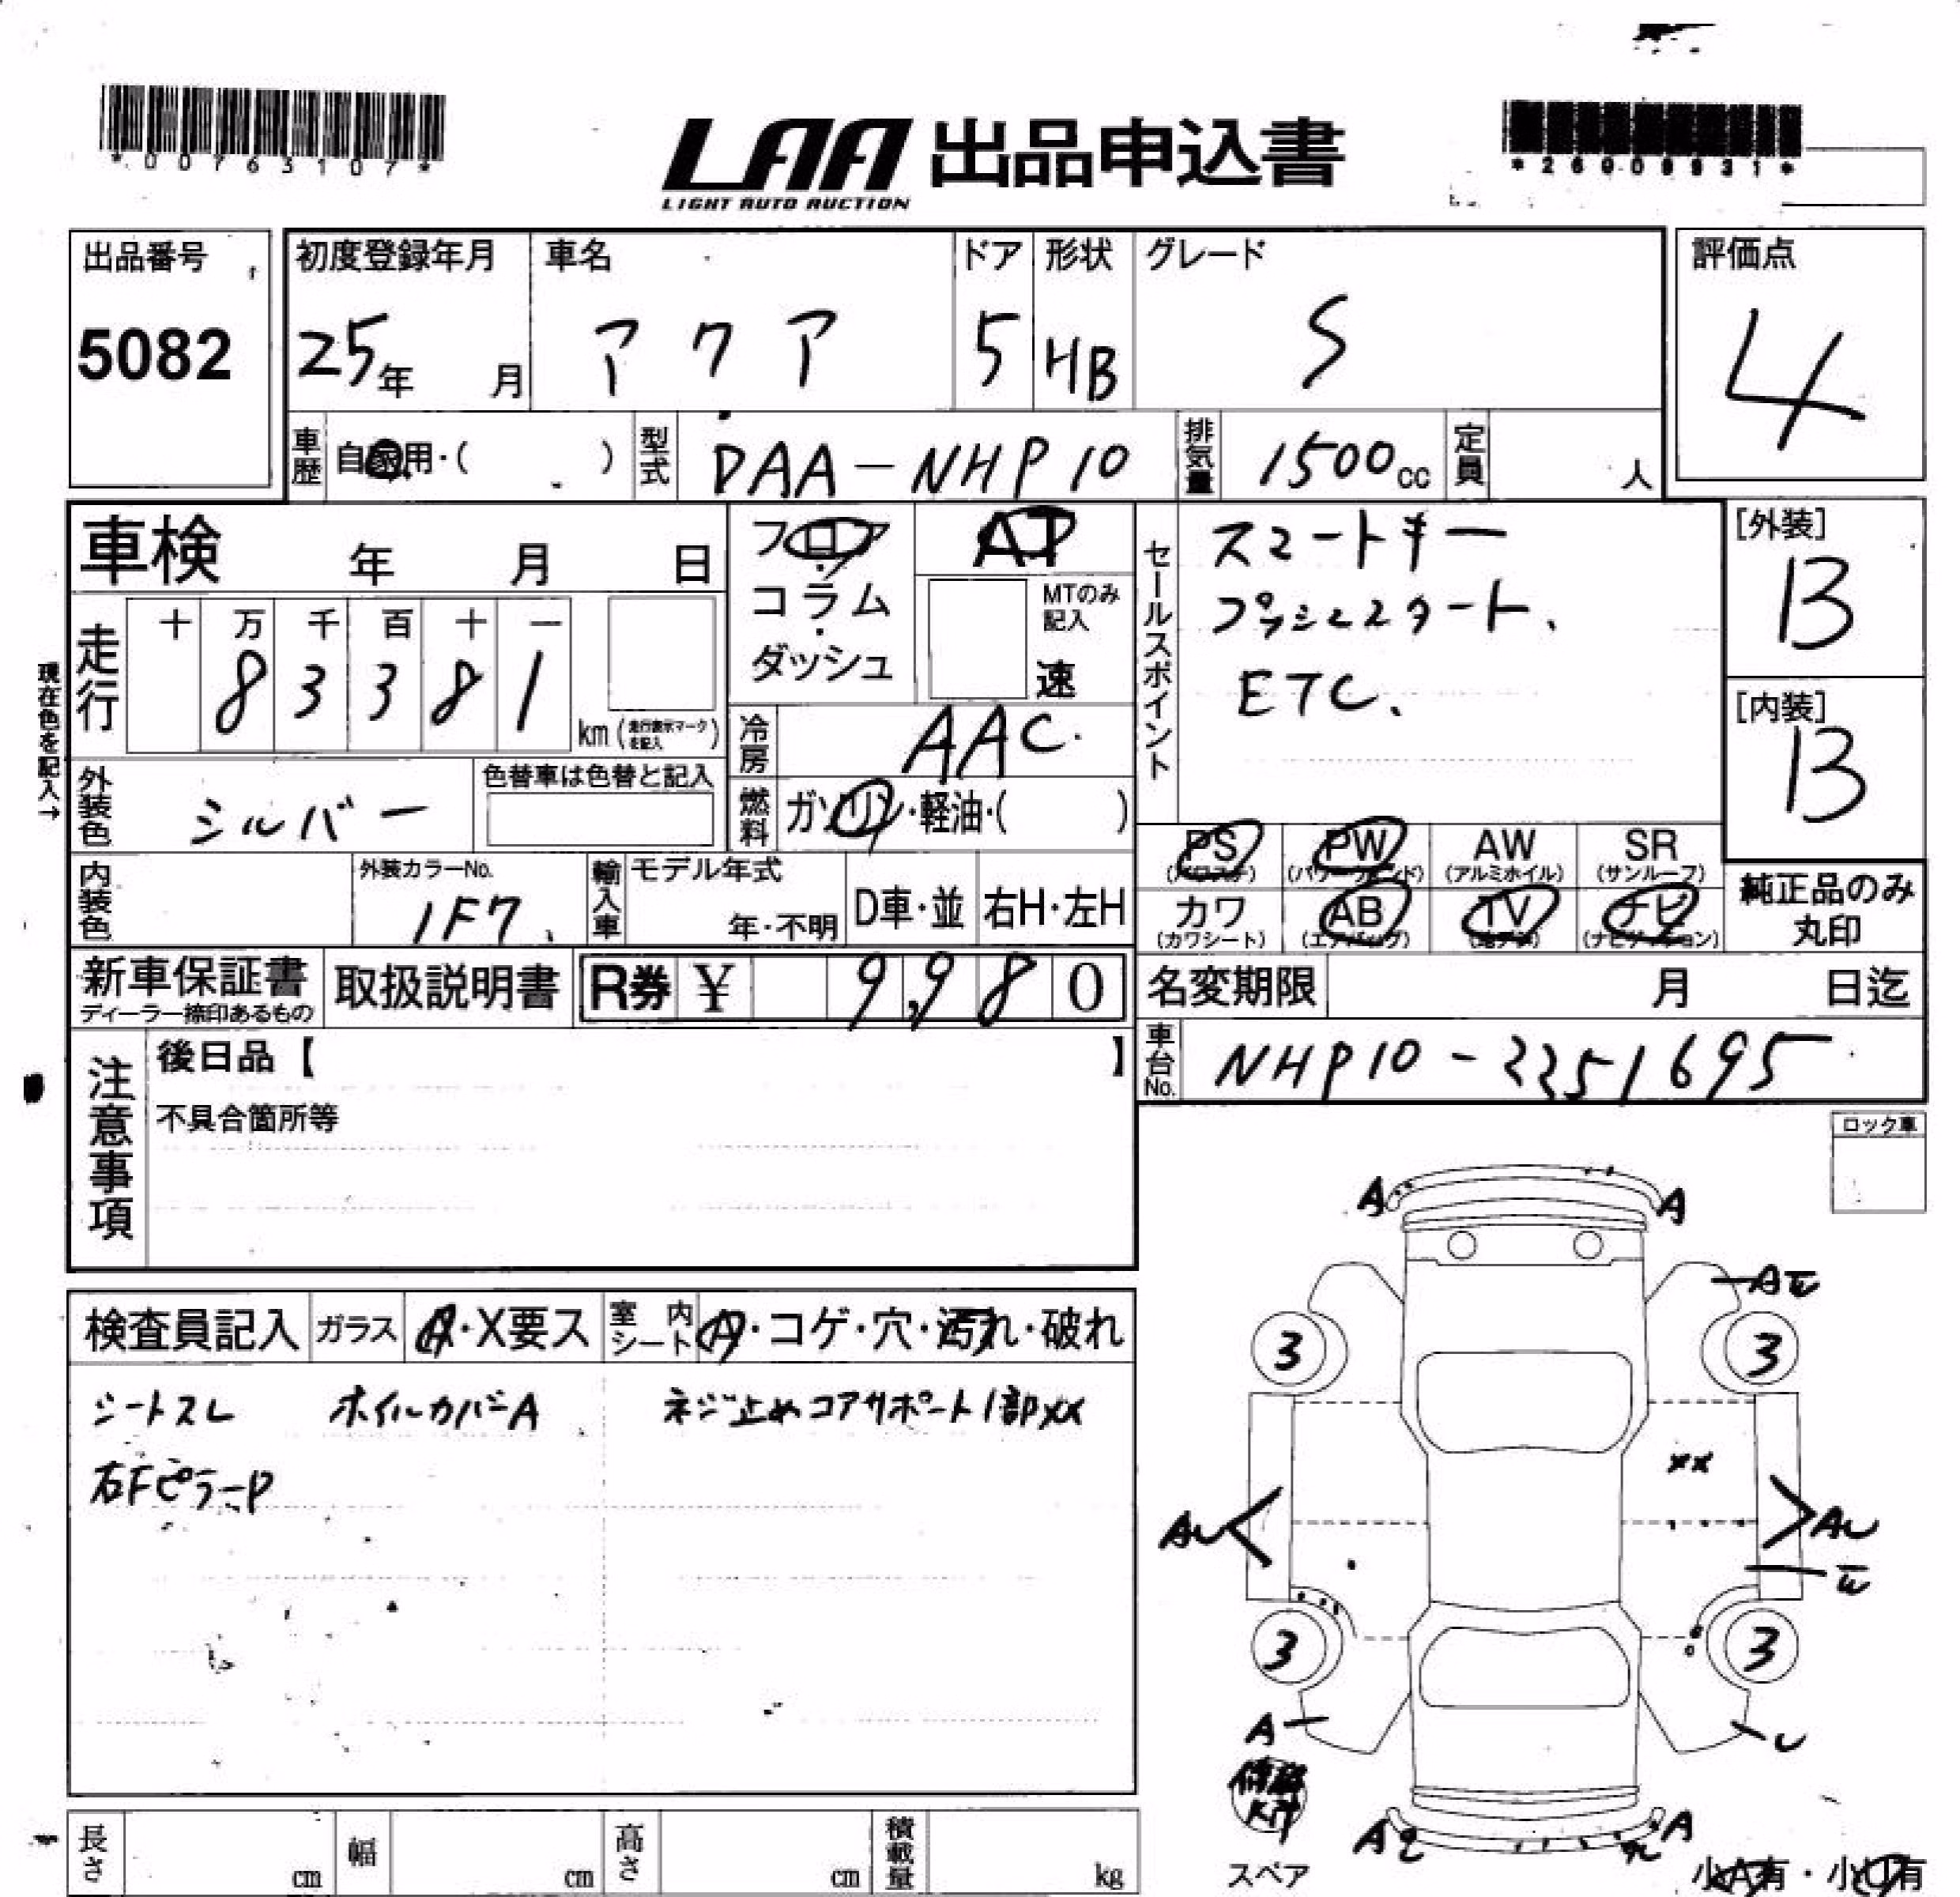 *00763107*
LAA 出品申込書
LIGHT AUTO AUCTION
出品番号
5082
初度登録年月
25年 月
車名
アクア
ドア
5
形状
HB
グレード
S
評価点
4
車歴 自家用・( )
型式 DAA-NHP10
排気量 1500cc
定員 人
車検 年 月 日
走行 十 万 千 百 十 一
8 3 3 8 1
km(走行表示マークを記入)
現在色を記入→
フロア
・
コラム
・
ダッシュ
AT
MTのみ記入
速
冷房 AAC.
燃料 ガソリン・軽油・( )
外装色 シルバー
色替車は色替と記入
内装色
外装カラーNo.
1F7.
輸入車
モデル年式
年・不明
D車・並
右H・左H
セールスポイント
スマートキー
プッシュスタート、
ETC.
[外装]
B
[内装]
B
PS PW AW SR
(パワステ) (パワーウィンド) (アルミホイル) (サンルーフ)
カワ AB TV ナビ
(カワシート) (エアバッグ) (地デジ) (ナビゲーション)
純正品のみ
丸印
新車保証書
ディーラー捺印あるもの
取扱説明書
R券 ¥ 9,980
名変期限 月 日迄
車台No. NHP10-2251695
注意事項
後日品【 】
不具合箇所等
ロック車
検査員記入
ガラス A・X要ス
室内シート A・コゲ・穴・汚れ・破れ
シートスレ ホイルカバーA ネジ止めコアサポート1部XX
右FピラーP
A A
3 3
XX
AU AU
3 3
A U
A A
スペア
小A有・小U有
長さ cm
幅 cm
高さ cm
積載量 kg